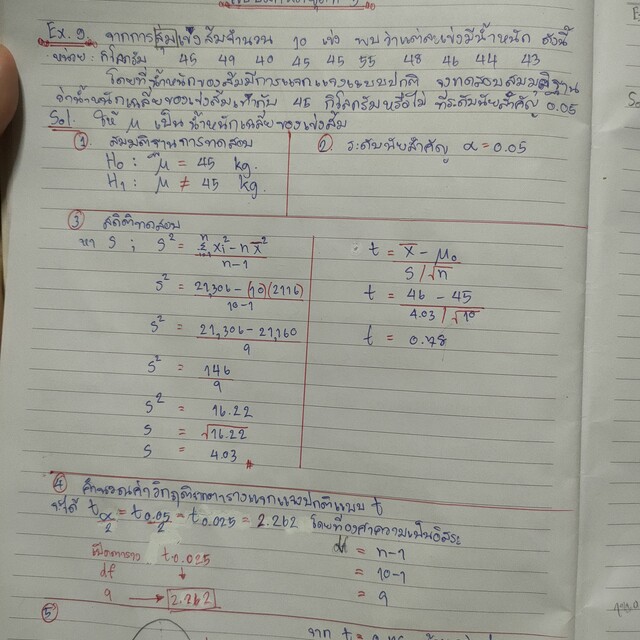 Ex. 9. จากการสุ่มเข่งส้มจำนวน 10 เข่ง พบว่าแต่ละเข่งมีน้ำหนัก ดังนี้
หน่วย : กิโลกรัม 45 49 40 45 45 55 48 46 44 43
โดยที่น้ำหนักของส้มมีการแจกแจงแบบปกติ จงทดสอบสมมุติฐาน
ว่าน้ำหนักเฉลี่ยของเข่งส้มเท่ากับ 45 กิโลกรัมหรือไม่ ที่ระดับนัยสำคัญ 0.05
Sol. ให้ μ เป็น น้ำหนักเฉลี่ยของเข่งส้ม
① สมมติฐานการทดสอบ
H₀ : μ = 45 kg.
H₁ : μ ≠ 45 kg.
② ระดับนัยสำคัญ α = 0.05
③ สถิติทดสอบ
หา S ; S² = Σxi² - nx̄² / n-1
S² = 21,306 - (10)(2116) / 10-1
S² = 21,306 - 21,160 / 9
S² = 146 / 9
S² = 16.22
S = √16.22
S = 4.03
t = x̄ - μ₀ / S/√n
t = 46 - 45 / 4.03/√10
t = 0.78
④ คำนวณค่าวิกฤติจากตารางแจกแจงปกติแบบ t
จะได้ t α/2 = t 0.05/2 = t 0.025 = 2.262 โดยที่องศาความเป็นอิสระ
df = n-1
= 10-1
= 9
เปิดตาราง t 0.025
df ↓
9 → 2.262
⑤
จาก t =